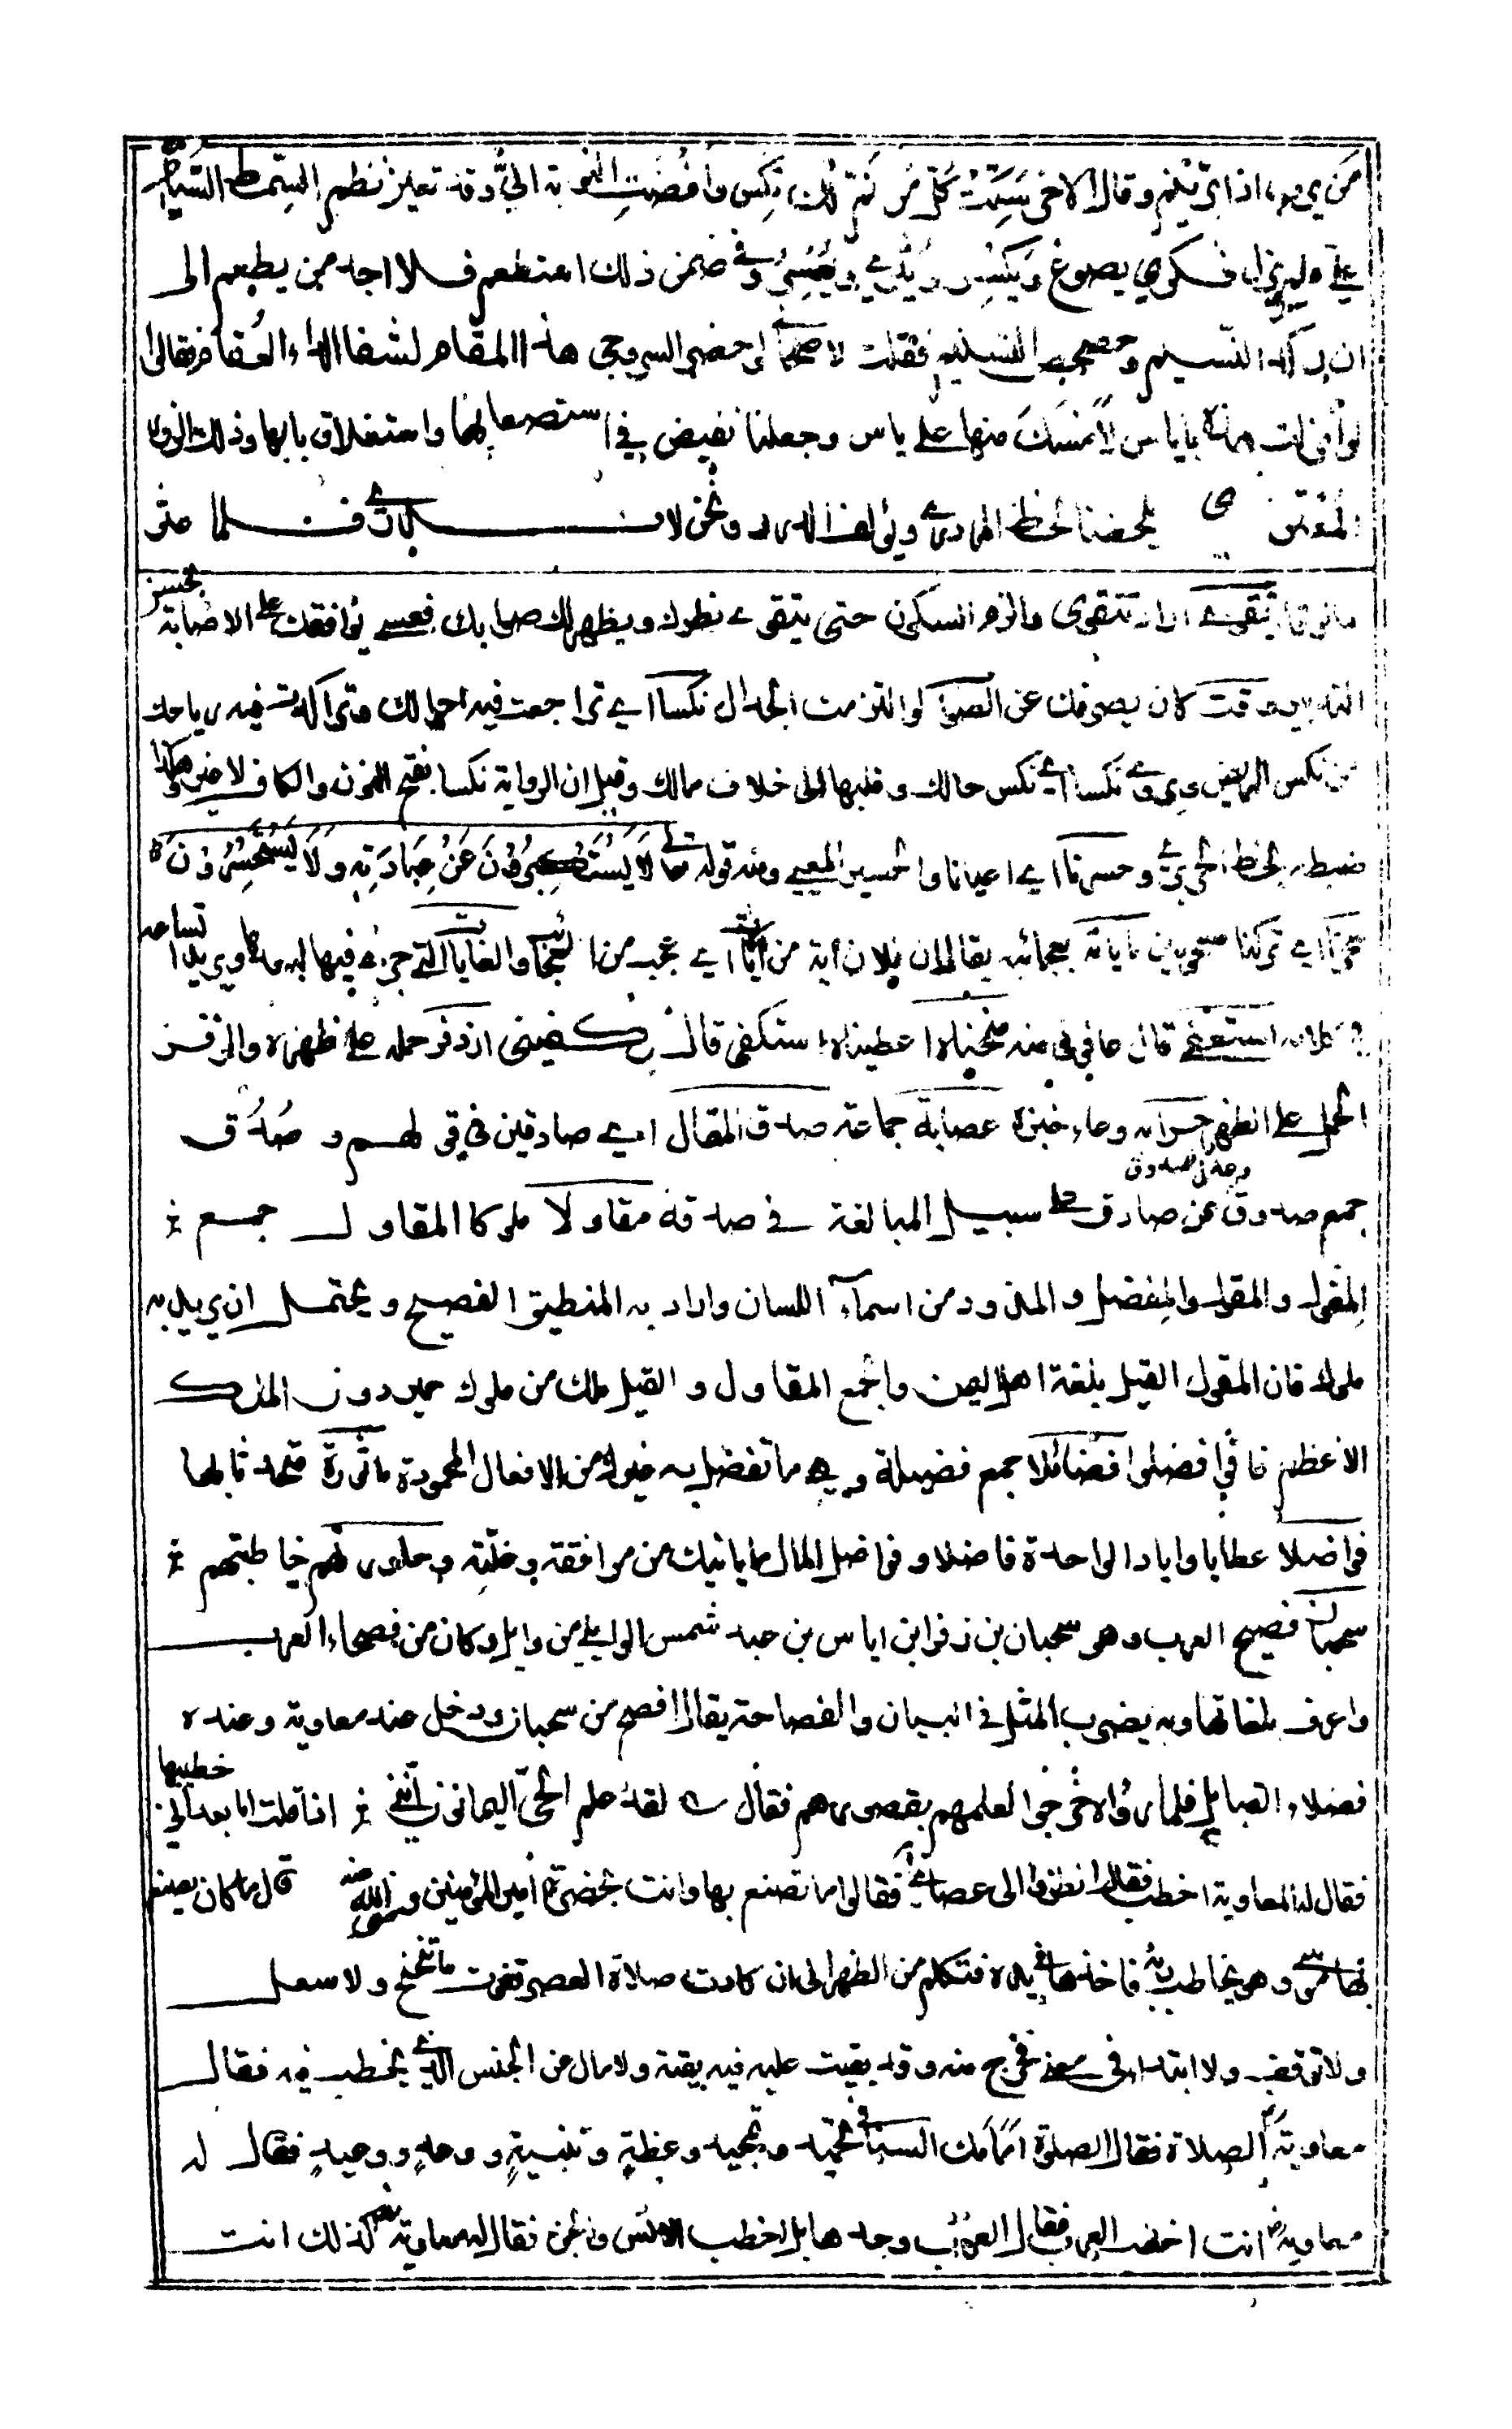 من يرب اذا بر ينم وقال الاخر سكت كل من نم لك تكس وافضت النوبة الي وقد تعين نظم السمط السباعي
علي ولم يزل فكري يصوغ ويكسر ويثري ويعسر وفي ضمن ذلك استطعم فلا اجد من يطعم الى
ان ركد النسيم وحصحص التسليم فقلت لاصحابي لو حضر السروجي هذا المقام لشفا الداء العقام فقالوا
لو نزلت هذه باياس لامسك منها على ياس وجعلنا نفيض في استصعابها واستغلاق بابها وذلك الزور
المعتري يلحظنا لحظ المزدري ويؤلف الدرر ونحن لا ندري فلما عثر
تتقوى والزم السكون حتى يتقوى نظرك ويظهر لك صوابك فعسى توافقك على الاصابة بحسن
وقت كان يصرفك عن الصواب لو التزمت الجدال نكسا اي تراجعت فيه احوالك وتراكدت فيه رياحك
من نكس المريض وروي نكسا اي نكس حالك وقلبها الى خلاف مالك وقيل ان الرواية نكسا بفتح النون والكاف لا غير وهكذا
ضبطه بخط الحريري وحسرنا اي اعيانا والحسير المعيي ومنه قوله تعالى لا يستكبرون عن عبادته ولا يستحسرون
اي تركنا متحيرين باياته بعجائبه يقال ان فلان آية من الآيات اي عجب من العجائب والغايات التي جرى فيها
كلامه استعفى قال عافوني منه منحناه اعطيناه استكفى قال كفيني ازدفر حمله على ظهره والزفر
الحمل على الظهر جرابه وعاء خبزه عصابة جماعة صدق المقال اي صادقين في قولهم وصدق
جمع صدوق عن صادق على سبيل المبالغة في صدقه مقاولا ملوكا المقاول جمع
وحد في صدوق
المقول والمقول والمفضل والمذود من اسماء اللسان واراد به المنطيق الفصيح ويحتمل ان يريد به
ملوك فان المقول القيل بلغة اهل اليمن والجمع المقاول والقيل ملك من ملوك حمير دون الملك
الاعظم فاقوا فضلوا فضائلا جمع فضيلة وهي ما تفضل به غيرك من الافعال المحمودة ماثورة متحدثا بها
فواضلا عطايا وايادا الواحدة فاضلا وفواضل المال ما ياتيك من مرافقه وغلته وحاورتهم خاطبتهم
سحبان فصيح العرب وهو سحبان بن زفر ابن اياس بن عبد شمس الوايلي من وايل وكان من فصحاء العرب
واعرف بلغاتها وبه يضرب المثل في البيان والفصاحة يقال افصح من سحبان ودخل عند معاوية وعنده
فضلاء القبايل فلما راوه خرجوا لعلمهم بقصورهم فقال لقد علم الحي اليمانون انني اذا قلت اما بعد اني خطيبها
فقال له معاوية اخطب فقال انظروا الى عصا فقالوا ما تصنع بها وانت بحضرة امير المؤمنين رضي الله عنه قال ما كان يصنع
بها موسى وهو يخاطب ربه فاخذها في يده فتكلم من الظهر الى ان كادت صلاة العصر تفوت ما تنحنح ولا سعل
ولا توقف ولا ابتدا في معنى فخرج منه وقد بقيت عليه فيه بقية ولا مال عن الجنس الذي يخطب فيه فقال
معاوية الصلاة فقال الصلوة امامك السنا في تحميد وتمجيد وعظة وتنبيه ووعد ووعيد فقال له
معاوية انت اخطب العرب فقال العرب وحدها بل اخطب الانس والجن فقال له معاوية كذلك انت